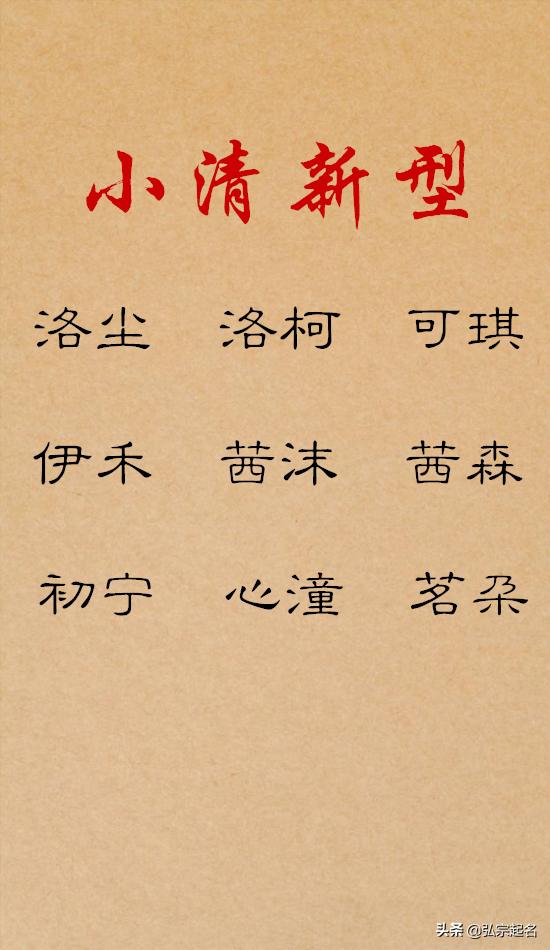 小清新型
洛尘 洛柯 可琪
伊禾 茜沫 茜森
初宁 心潼 茗朵
头条 @弘宗起名